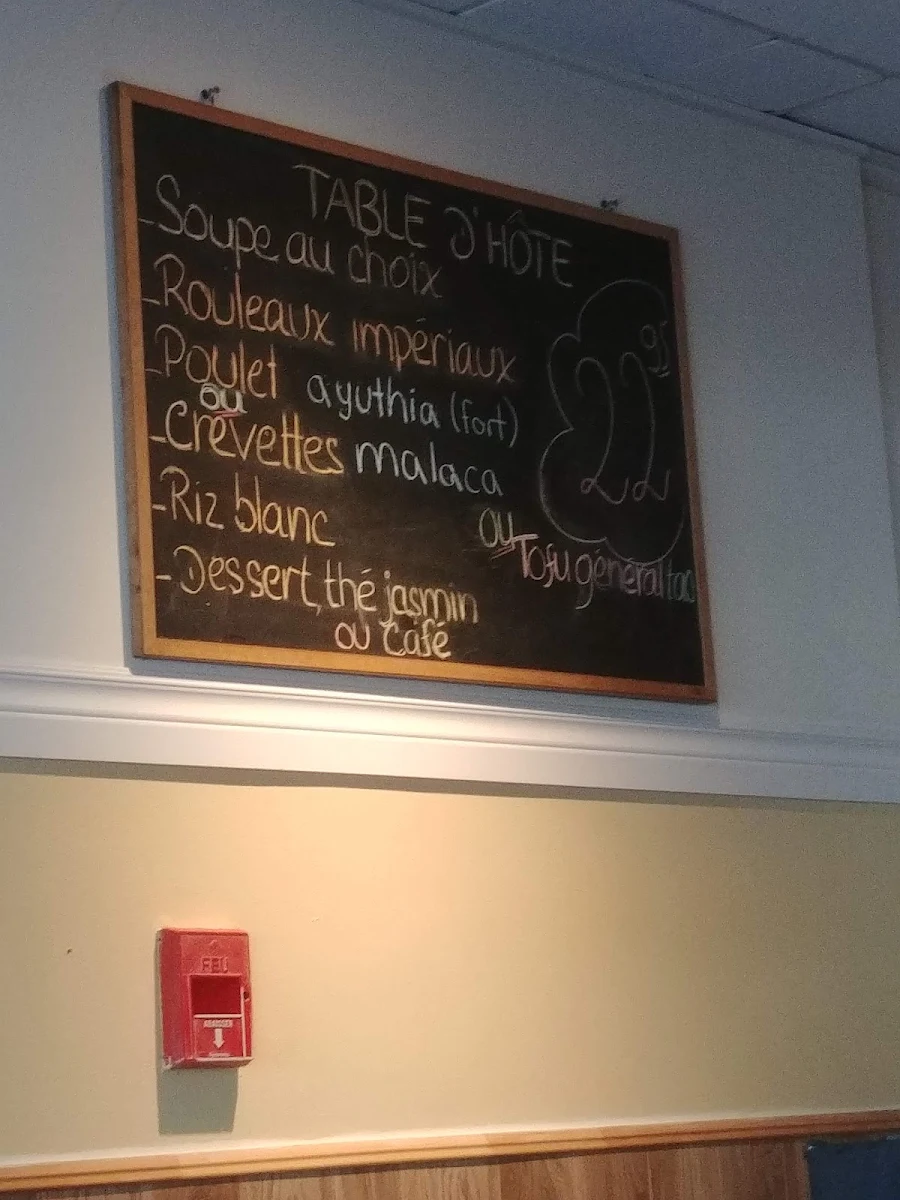 TABLE D'HÔTE
-Soupe au choix
-Rouleaux impériaux
-Poulet ayuthia (fort)
ou
-Crevettes malaca
-Riz blanc
ou
Tofu général tao
-Dessert, thé jasmin
ou Café
22 95
FEU